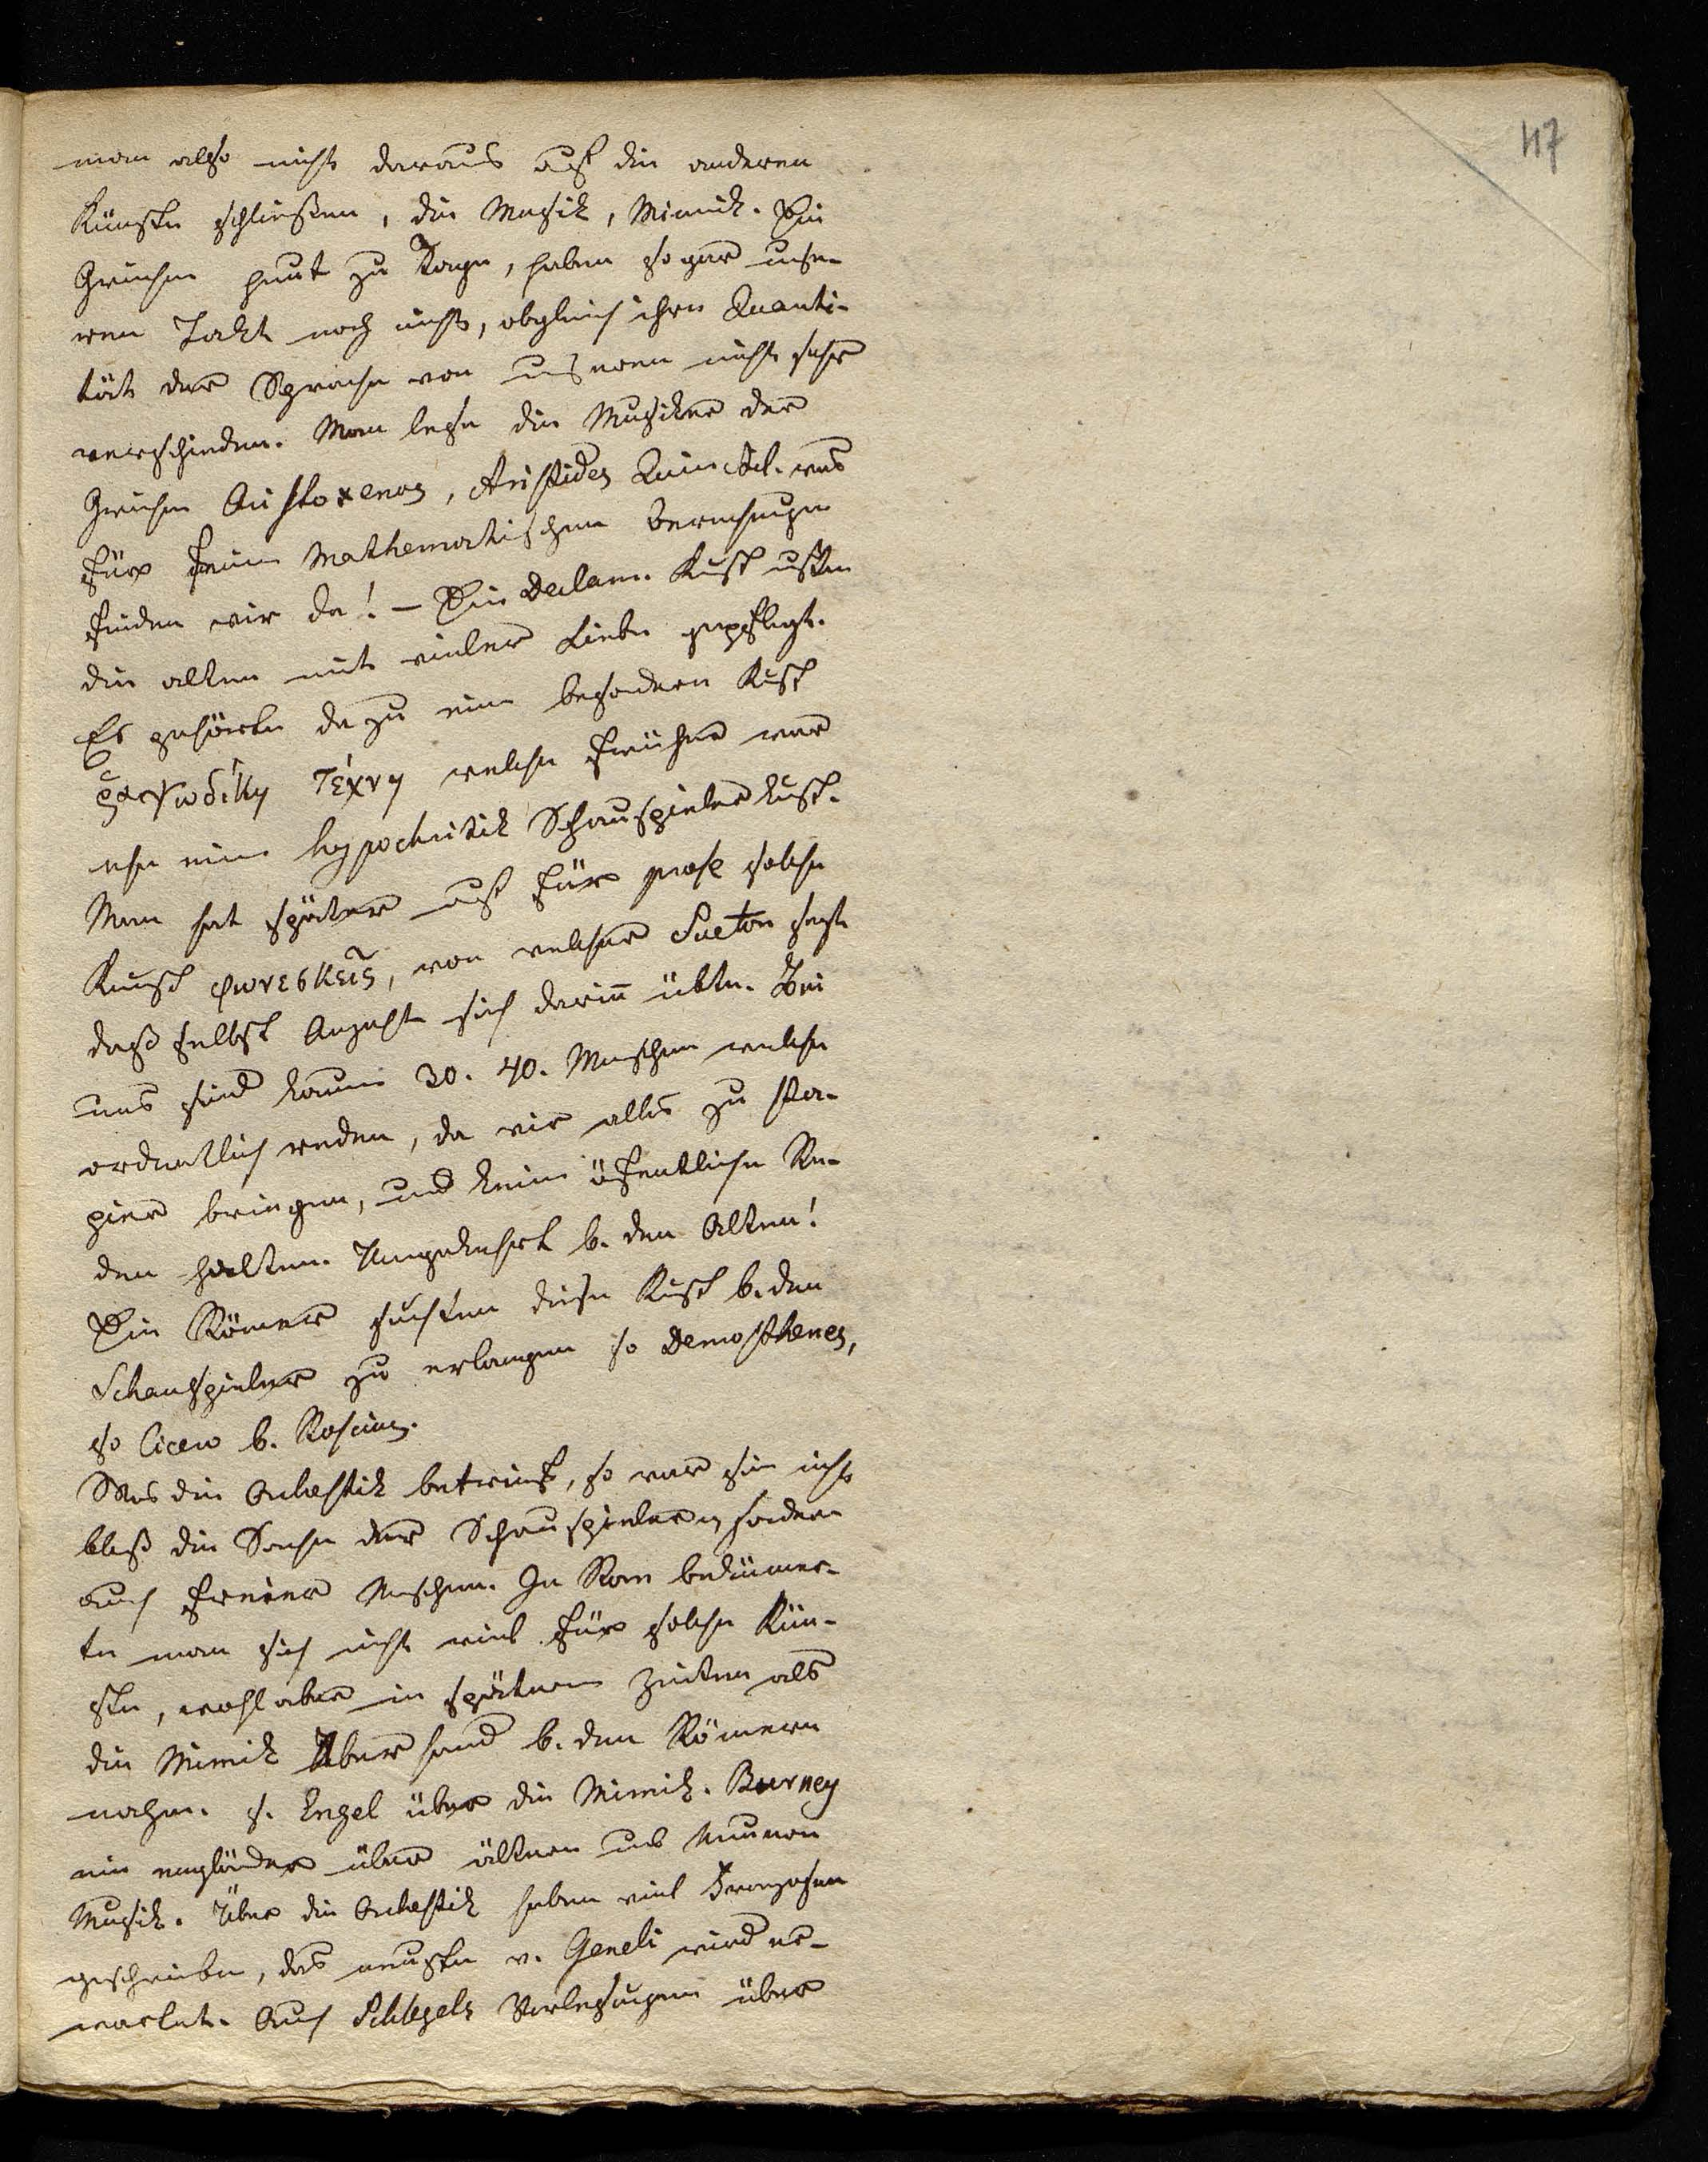 47
man also nicht daraus auf die anderen
Künste schließen, die Musik, Mimik. Die
Griechen heut zu Tage, haben sogar unse-
ren Takt noch nicht, obgleich ihre Quanti-
tät der Sprache von unseren nicht sehr
verschieden. Man lese die Musiker der
Griechen Aristoxenos, Aristides Quinctil. was
für feine Mathematischen Berechnungen
finden wir da! – Die Declam. Kust ußten
die alten mit vieler Liebe gepflegt.
Es gehörte dazu eine besondere Kust
ῥαψωδίκη τέχνη welche früher war
ehe eine hypochritik Schauspielerkust.
Man hat später auf für prose solche
Kunst φωνεσκεῖς, von welcher Sueton sagt
daß selbst August sich darin̄ übte. Bei
uns sind kaum 30. 40. Menschen welche
ordentlich reden, da wir alles zu Pa-
pier bringen, und keine öfentliche Re-
den halten. Umgekehrt b. den Alten!
Die Römer suchten diese Kust b. den
Schauspieler zu erlangen so Demosthenes,
so Cicero b. Roscius.
Was die Orchestik betrift, so war sie nicht
bloß die Sache der Schauspielern, sondern
auch freier Menschen. In Rom bekümer-
te man sich nicht viel für solche Kün-
ste, wohl aber in späteren Zeiten als
die Mimik Uberhand b. den Römern
nahm. s. Engel über die Mimik. Burney
ein engländer über ältere und Neuere
Musik. Über die Orchestik haben viel Franzosen
geschrieben, das neuste v. Geneli wird er-
wartet. Auch Schlegels Vorlesungen über